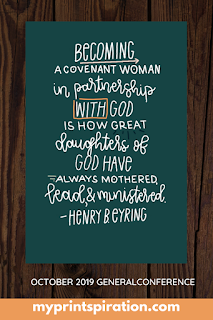 BECOMING
A COVENANT WOMAN
in partnership
WITH GOD
IS HOW GREAT
daughters of
GOD HAVE
ALWAYS MOTHERED,
lead, & ministered.
-HENRY B. EYRING
OCTOBER 2019 GENERALCONFERENCE
myprintspiration.com